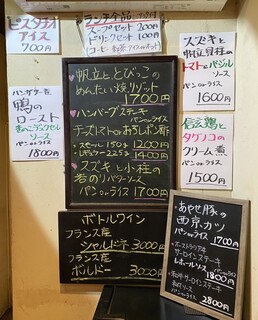 ピスタチオ
アイス
700円
ランチ全品
スープセット 200円
ドリンクセット 100円
コーヒー・紅茶
スズキと
帆立貝柱の
トマトバジル
ソース
パンorライス
1600円
鴨の
ロースト
ソース
パンorライス
1800円
帆立ととびっこの
めんたい焼リゾット
1700円
ハンバーグステーキ
チーズトマトorおろしポン酢
スモール 150g 1200円
レギュラー 225g 1400円
スズキと小柱の
岩のりバターソース
パンorライス 1700円
信玄鶏と
タケノコの
クリーム煮
パンorライス
1500円
ボトルワイン
フランス産
シャルドネ 3000円
フランス産
ボルドー 3000円
あやせ豚の
西京カツ
パンorライス
1700円
サーロインステーキ
ソース
パンorライス
1800円
サーロインステーキ
パンorライス
2800円